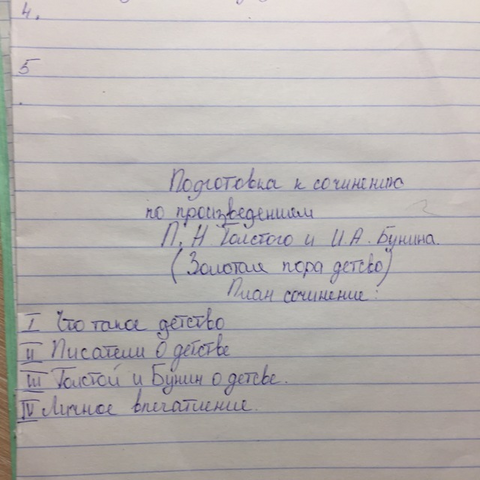 4.
5
Подготовка к сочинению
по произведениям
Л. Н Толстого и И.А. Бунина.
(Золотая пора детсво)
План сочинение:
I Что такое детство
II Писатели о детстве
III Толстой и Бунин о детсве.
IV Личное впечатление.